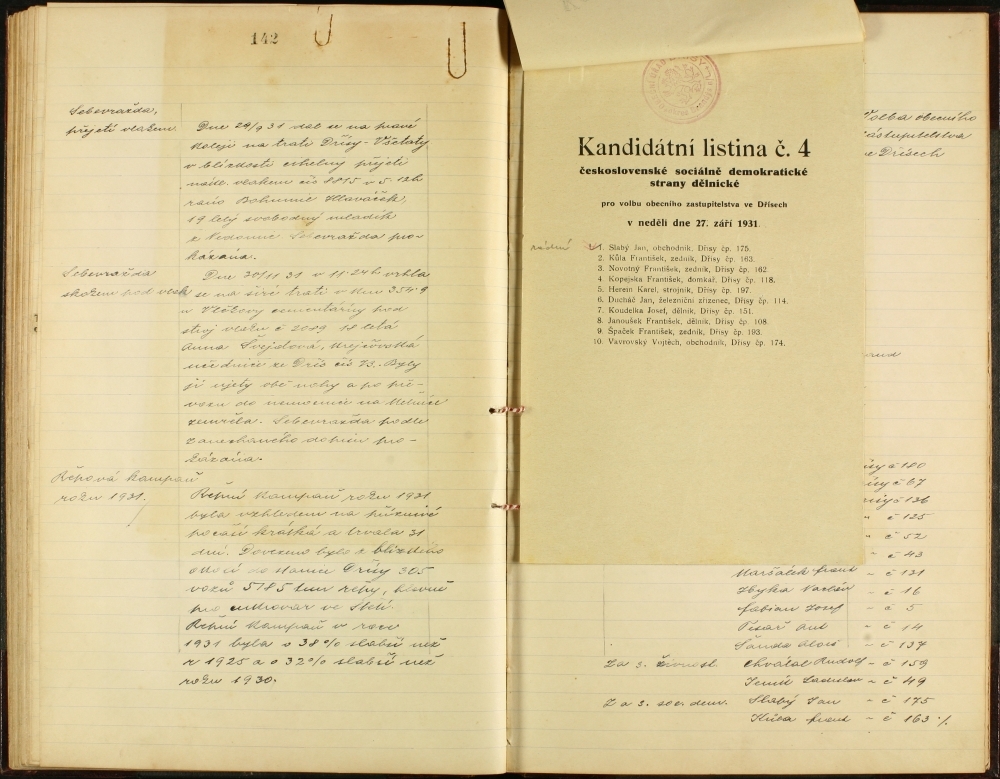 142
Sebevražda,
přejetí vlakem
Dne 29/9 31 dal se na pravé
koleji na trati Dřísy-Všetaty
v blízkosti cihelny přejeti
nákl. vlakem čís 8815 v 5.12h
ráno Bohumil Hlaváček,
19 letý svobodný mladík
z Nedomic. Sebevražda pro-
kázána.
Sebevražda
skokem pod vlak
Dne 20/11 31 v 11.24 h vrhla
se na širé trati v km 354.9
u Všetaty pod
stroj vlaku č 2089 18 letá
Anna Švejdová,
ze Dřís čís 73. Byly
jí ujety obě nohy a po pře-
vozu do nemocnice na Mělníce
zemřela. Sebevražda podle
zanechaného dopisu pro-
kázána.
Řepová kampaň
roku 1931.
Řepní kampaň roku 1931
byla vzhledem na příznivé
počasí krátká a trvala 31
dní. Dovezeno bylo z blízkého
okolí do stanice Dřísy 305
vozů 5185 tun řepy, hlavně
pro cukrovar ve
Řepní kampaň v roce
1931 byla o 38% slabší než
r 1925 a o 32% slabší než
roku 1930.
Kandidátní listina č. 4
československé sociálně demokratické
strany dělnické
pro volbu obecního zastupitelstva ve Dřísech
v neděli dne 27. září 1931.
1. Slabý Jan, obchodník, Dřísy čp. 175.
2. Kůla František, zedník, Dřísy čp. 163.
3. Novotný František, zedník, Dřísy čp. 162
4. Kopejska František, domkář, Dřísy čp. 118.
5. Herein Karel, strojník, Dřísy čp. 197.
6. Ducháč Jan, železniční zřízenec, Dřísy čp. 114.
7. Koudelka Josef, dělník, Dřísy čp. 151.
8. Janoušek František, dělník, Dřísy čp. 108
9. Špaček František, zedník, Dřísy čp. 193.
10. Vavrovský Vojtěch, obchodník, Dřísy čp. 174.
Volba obecního
zastupitelstva
ve Dřísech
č 180
č 67
č 136
" č 125
" č 52
" č 43
Maršálek Frant - č 131
Václav - č 16
Fabian Josef - č 5
Písař Ant - č 14
Šanda Alois - č 137
Za s. živnost Chvátal Rudolf - č 159
Ladislav - č 49
Za s. soc. dem. Slabý Jan - č 175
Kůla Frant - č 163 ./.